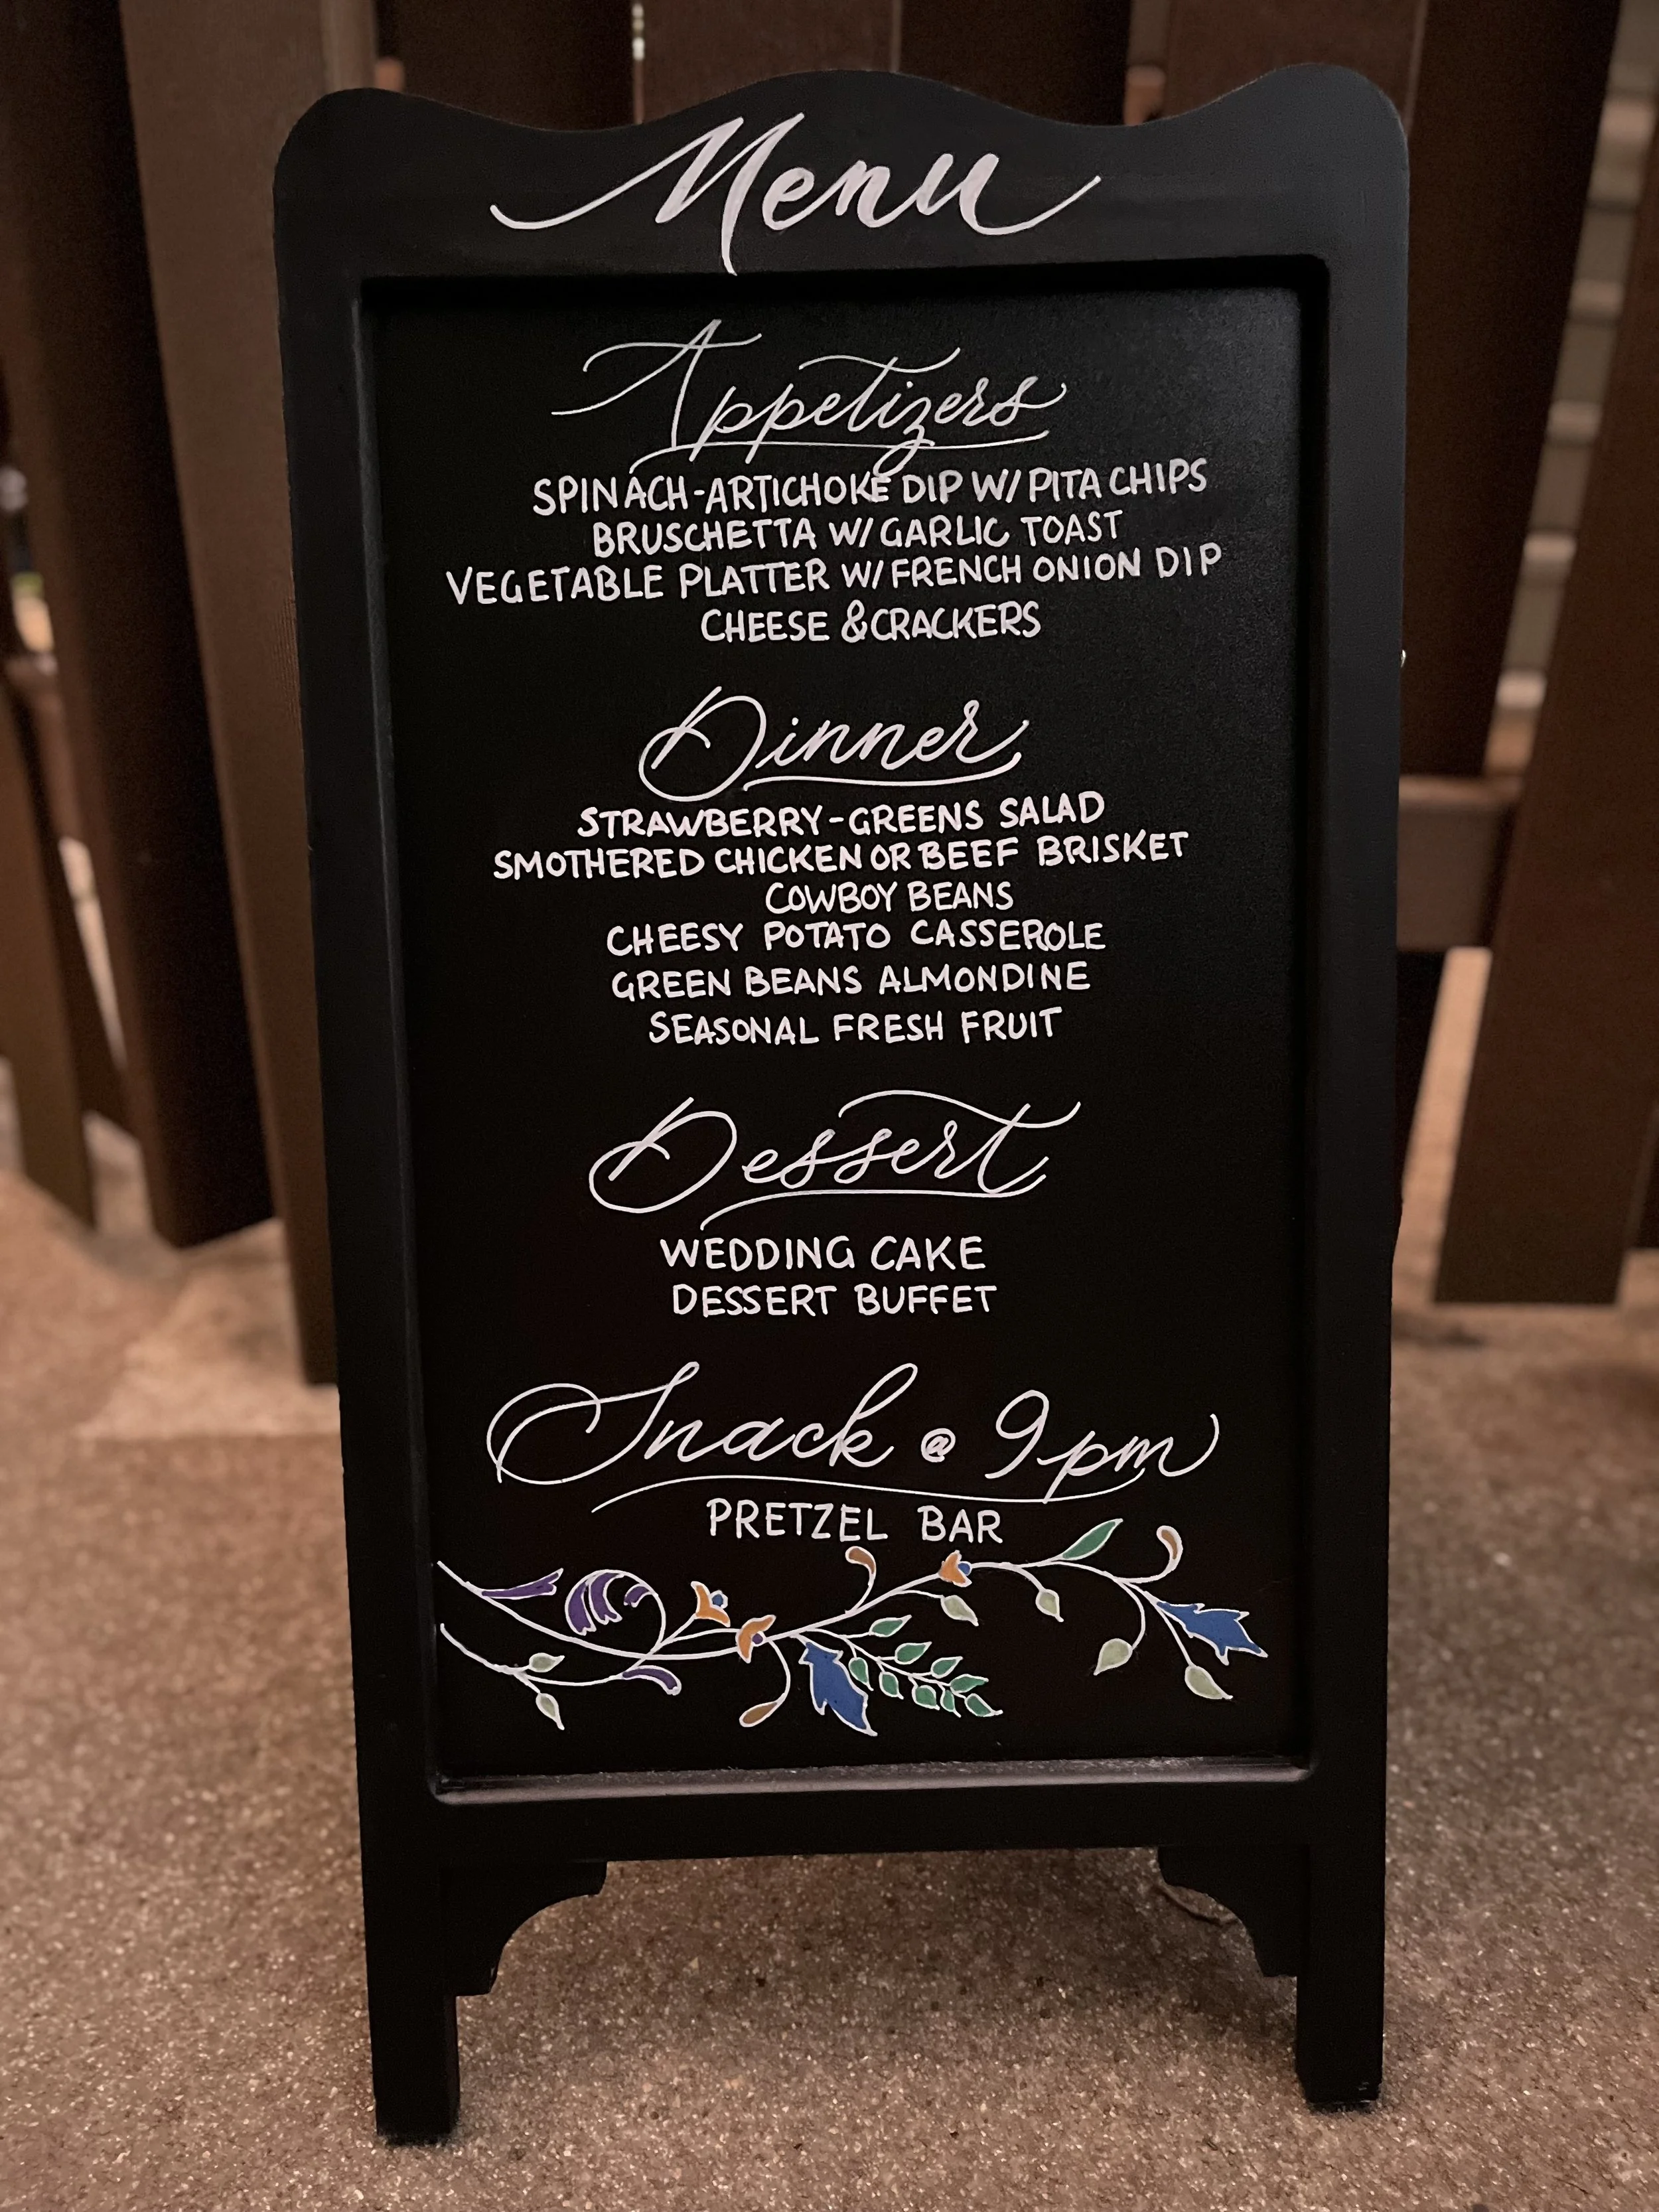 Menu
Appetizers
SPINACH-ARTICHOKE DIP W/ PITA CHIPS
BRUSCHETTA W/ GARLIC TOAST
VEGETABLE PLATTER W/ FRENCH ONION DIP
CHEESE & CRACKERS
Dinner
STRAWBERRY-GREENS SALAD
SMOTHERED CHICKEN OR BEEF BRISKET
COWBOY BEANS
CHEESY POTATO CASSEROLE
GREEN BEANS ALMONDINE
SEASONAL FRESH FRUIT
Dessert
WEDDING CAKE
DESSERT BUFFET
Snack @ 9pm
PRETZEL BAR